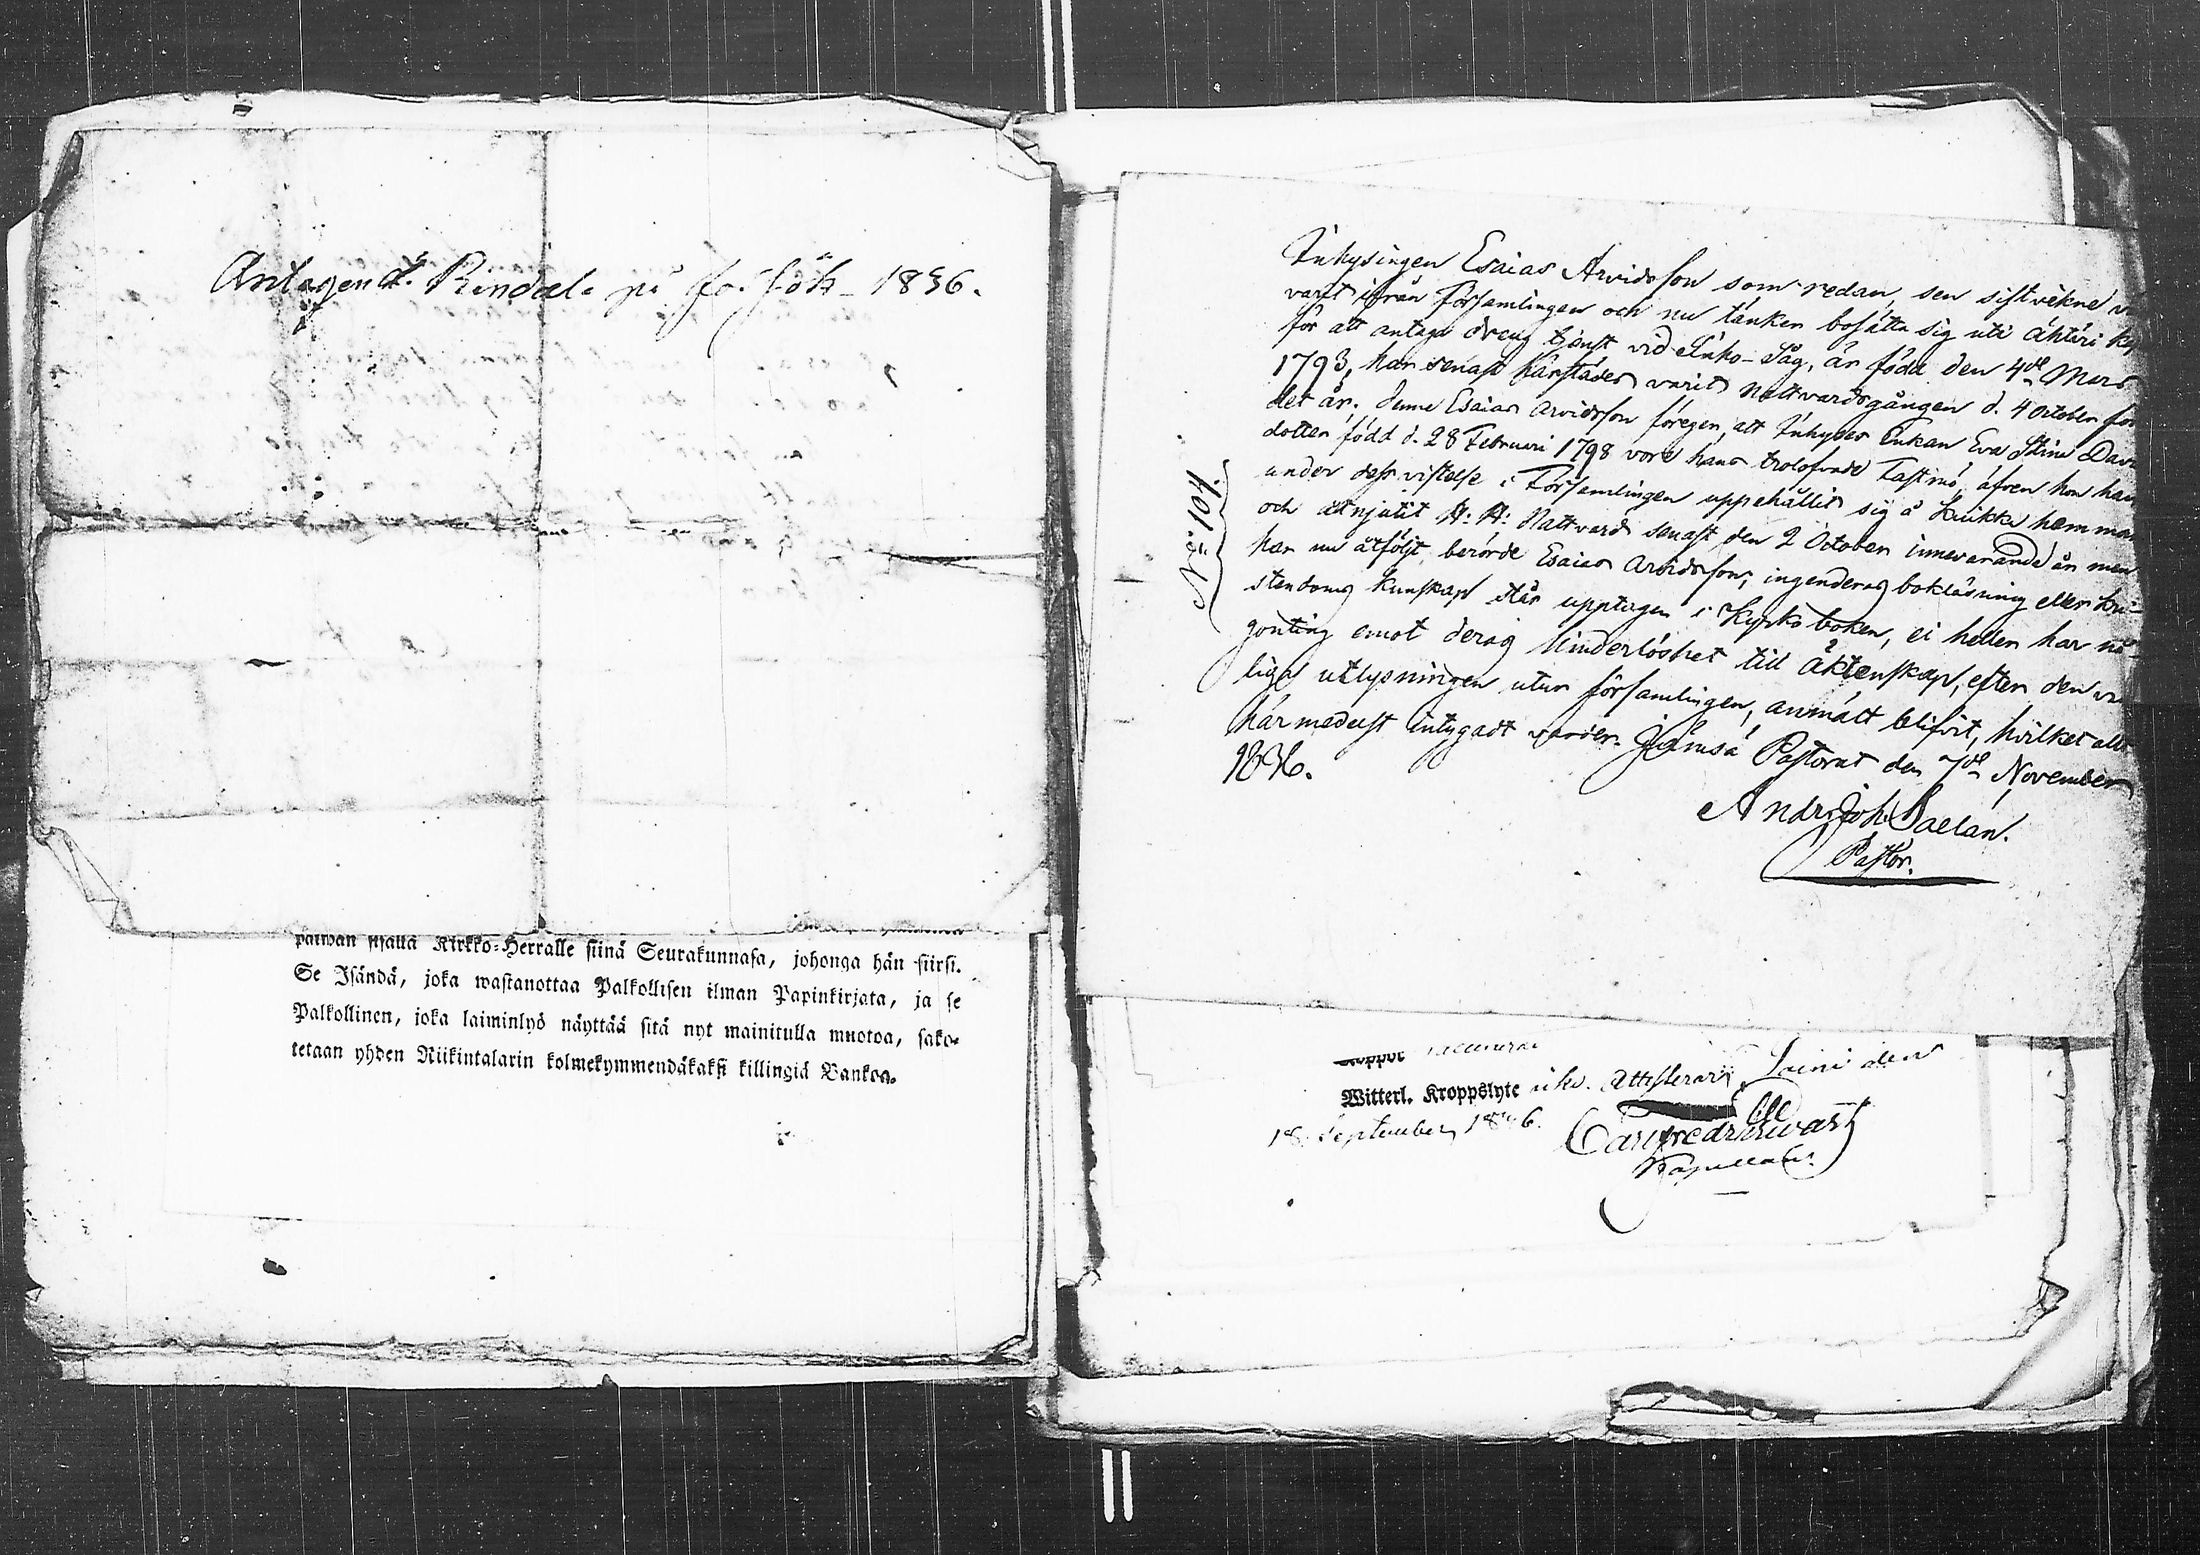 Antagen d. Rindel. på fo. föh - 1836.
paiwan sisällä Kirkko-Herralle siinä Seurakunnasa, johonga hän siirsi.
Se Isändä, joka wastanottaa Palkollisen ilman Papinkirjata, ja se
Palkollinen, joka laiminlyö näyttää sitä nyt mainitulla muotoa, sako-
tetaan yhden Riikintalarin kolmekymmendäkaksi killingiä Bankoa.
No 104.
Inhysingen Esaias Arvidsson som redan, sen sistvekne
varit ifrån Församlingen och nu tänker bosätta sig uti Ähtäri
för att antaga dreng tjenst vid Inho-Såg, är född den 4de Mars
1793, har senast härstädes varit Nattvardsgången d. 4 October för
det år. Denne Esaias Arvidsson föregen, att Inhyses Enkan Eva Stina Davi
dotter född d. 28 Februari 1798 vore hans trolofvade Fästmö, äfven hon har
under dess vistelse i Församlingen uppehållit sig å Kuikka hemman
och åtnjutit H: H: Nattvard senast den 2 October innevarande år men
har nu åtföljt berörde Esaias Arvidsson; ingenderas bokläsning eller kri-
stendoms kunskap står upptagen i Kyrko boken, ei heller har nå-
gonting emot deras hinderlöshet till Äktenskap, efter den van
liga utlysningen utur församlingen, anmält blifvit, hvilket allt
härmedelst intygadt varder. Jämsä Pastorat den 7de November
1836.
Andr. Joh. Saelan.
Pastor.
Witterl. Kroppslyte
Attesterar, Saini den
18 September 1836.
Capellan.